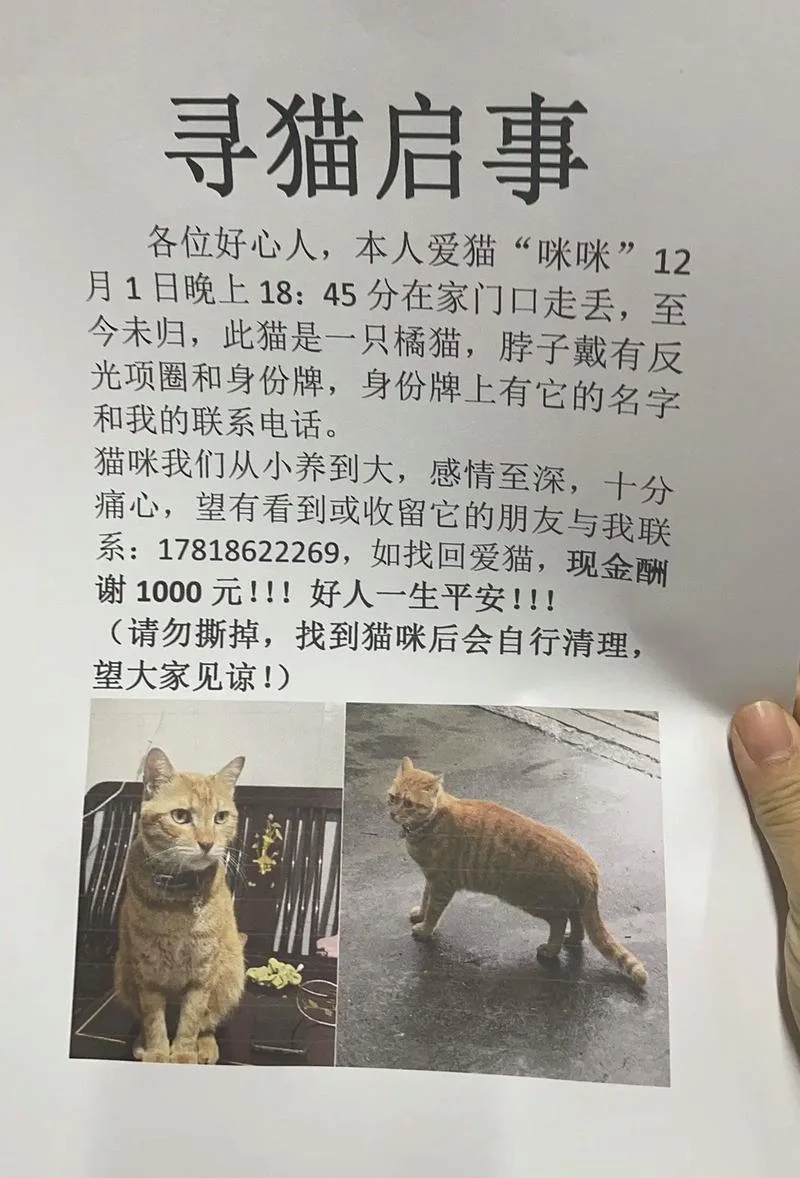 寻猫启事
各位好心人，本人爱猫“咪咪”12
月1日晚上18：45分在家门口走丢，至
今未归，此猫是一只橘猫，脖子戴有反
光项圈和身份牌，身份牌上有它的名字
和我的联系电话。
猫咪我们从小养到大，感情至深，十分
痛心，望有看到或收留它的朋友与我联
系：17818622269，如找回爱猫，现金酬
谢1000元!!! 好人一生平安!!!
（请勿撕掉，找到猫咪后会自行清理，
望大家见谅!）